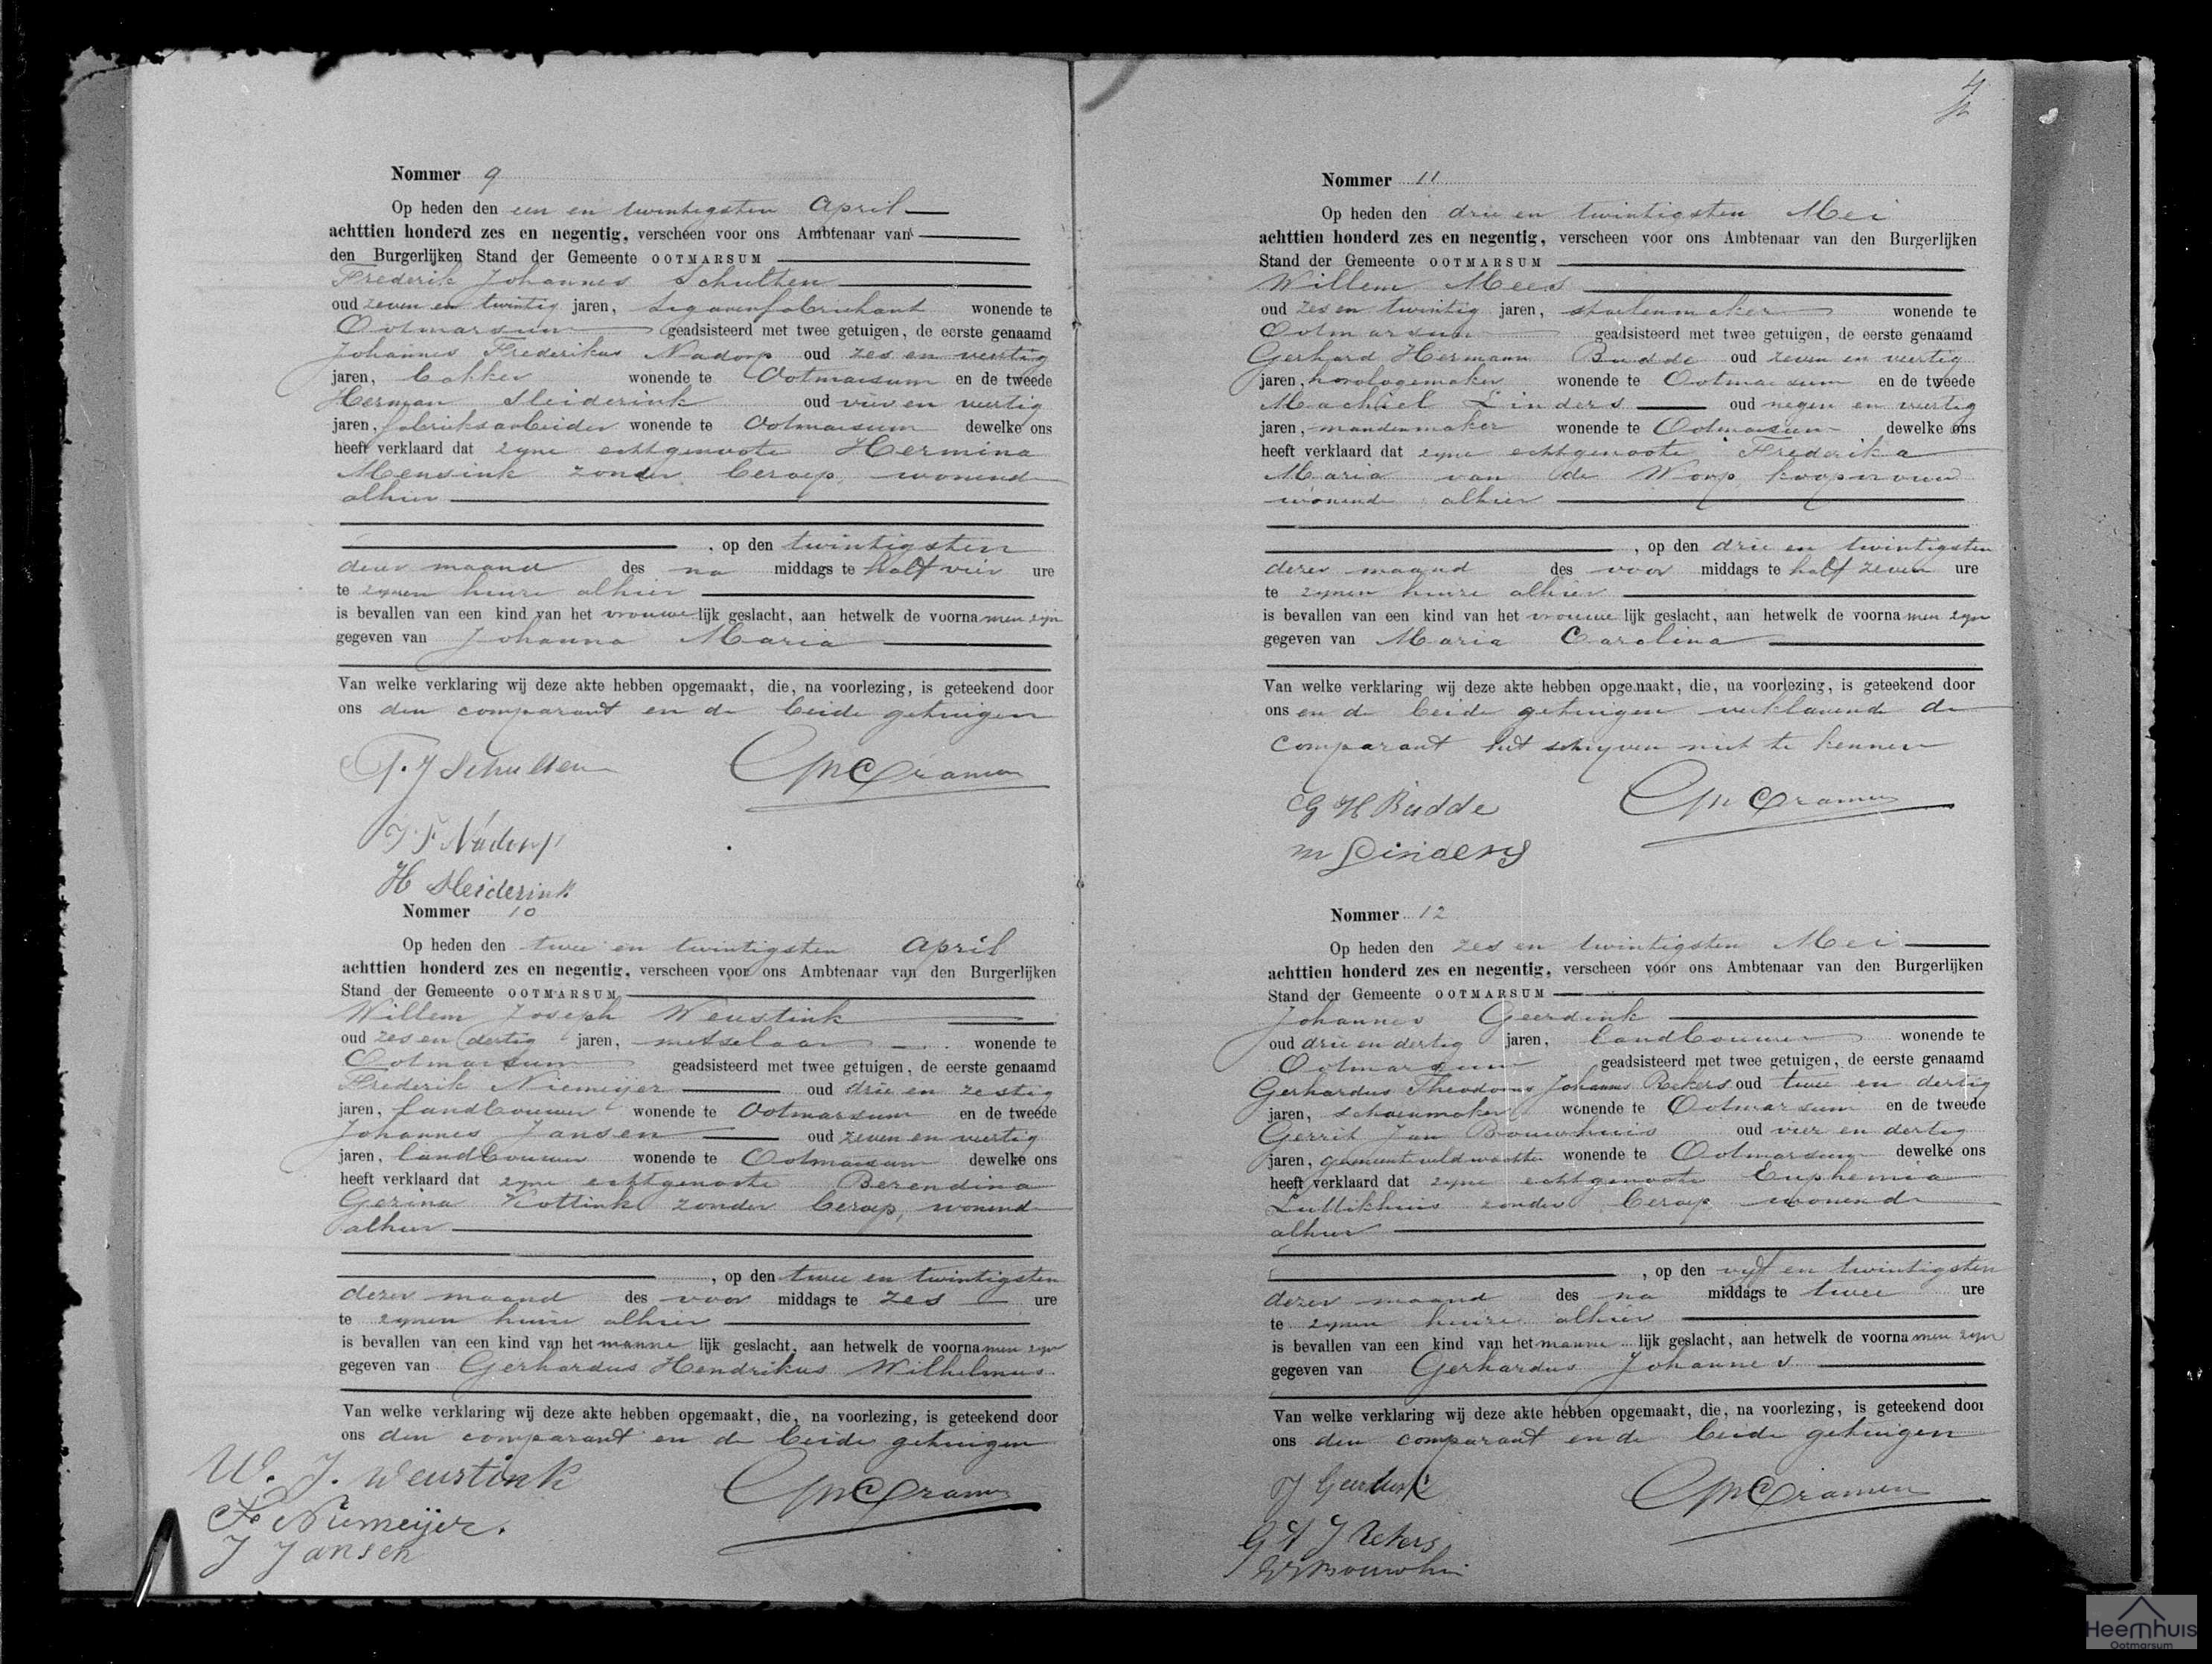 Nommer 9
Op heden den een en twintigsten April
achttien honderd zes en negentig, verscheen voor ons Ambtenaar van
den Burgerlijken Stand der Gemeente OOTMARSUM
Frederik Johannes Schulten
oud zeven en twintig jaren, sigarenfabrikant wonende te
Ootmarsum geadsisteerd met twee getuigen, de eerste genaamd
Johannes Frederikus Nadorp oud zes en veertig
jaren, bakker wonende te Ootmarsum en de tweede
Herman Sleiderink oud vier en veertig
jaren, fabrieksarbeider wonende te Ootmarsum dewelke ons
heeft verklaard dat zyne echtgenoote Hermina
Mensink zonder beroep, wonende
alhier
, op den twintigsten
dezer maand des na middags te half vier ure
te zynen huize alhier
is bevallen van een kind van het vrouwelijk geslacht, aan hetwelk de voornamen zyn
gegeven van Johanna Maria
Van welke verklaring wij deze akte hebben opgemaakt, die, na voorlezing, is geteekend door
ons den comparant en de beide getuigen
F. J Schulten Cramer
J F Nadorp
H Sleiderink
Nommer 10
Op heden den twee en twintigsten April
achttien honderd zes en negentig, verscheen voor ons Ambtenaar van den Burgerlijken
Stand der Gemeente OOTMARSUM
Willem Joseph Weustink
oud zes en dertig jaren, metselaar wonende te
Ootmarsum geadsisteerd met twee getuigen, de eerste genaamd
Frederik Niemeijer oud drie en zestig
jaren, landbouwer wonende te Ootmarsum en de tweede
Johannes Jansen oud zeven en veertig
jaren, landbouwer wonende te Ootmarsum dewelke ons
heeft verklaard dat zyne echtgenoote Berendina
Gerina Kottink zonder beroep, wonende
alhier
, op den twee en twintigsten
dezer maand des voor middags te zes ure
te zynen huize alhier
is bevallen van een kind van het mannelijk geslacht, aan hetwelk de voornamen zyn
gegeven van Gerhardus Hendrikus Wilhelmus
Van welke verklaring wij deze akte hebben opgemaakt, die, na voorlezing, is geteekend door
ons den comparant en de beide getuigen
W. J. Weustink Cramer
Fe Niemeijer.
J Jansen
4
Nommer 11
Op heden den drie en twintigsten Mei
achttien honderd zes en negentig, verscheen voor ons Ambtenaar van den Burgerlijken
Stand der Gemeente OOTMARSUM
Willem Mees
oud zes en twintig jaren, stoelenmaker wonende te
Ootmarsum geadsisteerd met twee getuigen, de eerste genaamd
Gerhard Hermann Budde oud zeven en veertig
jaren, horologemaker wonende te Ootmarsum en de tweede
Machiel Linders oud negen en veertig
jaren, mandenmaker wonende te Ootmarsum dewelke ons
heeft verklaard dat zyne echtgenoote Frederika
Maria van de Worp, koopvrouw
wonende alhier
, op den drie en twintigsten
dezer maand des voor middags te half zeven ure
te zynen huize alhier
is bevallen van een kind van het vrouwelijk geslacht, aan hetwelk de voornamen zyn
gegeven van Maria Carolina
Van welke verklaring wij deze akte hebben opgemaakt, die, na voorlezing, is geteekend door
ons en de beide getuigen verklarende de
comparant het schryven niet te kennen
G H Budde Cramer
M Linders
Nommer 12
Op heden den zes en twintigsten Mei
achttien honderd zes en negentig, verscheen voor ons Ambtenaar van den Burgerlijken
Stand der Gemeente OOTMARSUM
Johannes Geerdink
oud drie en dertig jaren, landbouwer wonende te
Ootmarsum geadsisteerd met twee getuigen, de eerste genaamd
Gerhardus Theodorus Johannes Rekers oud twee en dertig
jaren, schoenmaker wonende te Ootmarsum en de tweede
Gerrit Jan Bouwhuis oud vier en dertig
jaren, gemeenteveldwachter wonende te Ootmarsum dewelke ons
heeft verklaard dat zyne echtgenoote Euphemia
Luttikhuis zonder beroep wonende
alhier
, op den vyf en twintigsten
dezer maand des na middags te twee ure
te zynen huize alhier
is bevallen van een kind van het mannelijk geslacht, aan hetwelk de voornamen zyn
gegeven van Gerhardus Johannes
Van welke verklaring wij deze akte hebben opgemaakt, die, na voorlezing, is geteekend door
ons den comparant en de beide getuigen
J Geerdink Cramer
G T J Rekers
GJ Bouwhuis
Heemhuis
Ootmarsum